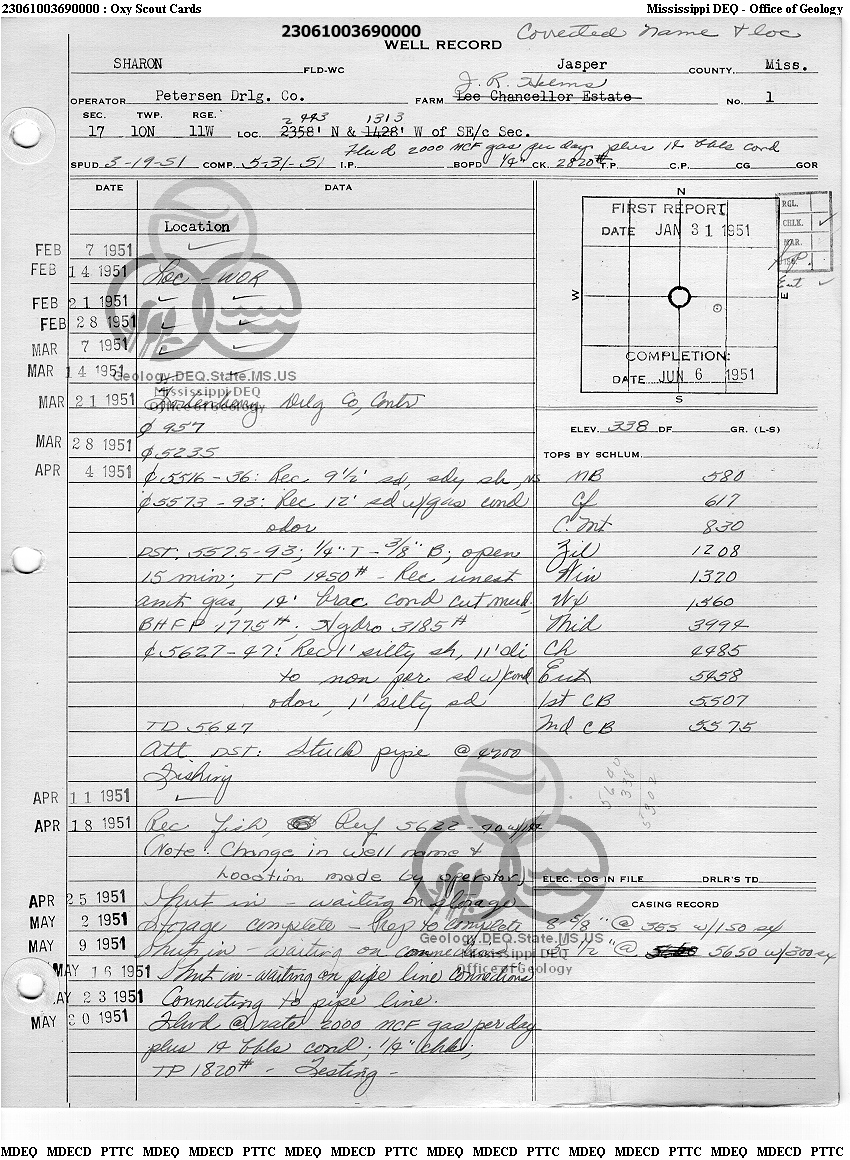 23061003690000 : Oxy Scout Cards
Mississippi DEQ - Office of Geology
23061003690000
Corrected name & loc
WELL RECORD
SHARON FLD-WC Jasper COUNTY Miss.
J. R. Helms
OPERATOR Petersen Drlg. Co. FARM Lee Chancellor Estate No. 1
SEC. TWP. RGE. 2443 1313
17 10N 11W LOC. 2358' N & 1428' W of SE/c Sec.
Flwd 2000 MCF gas per day plus 14 bbls cond
SPUD 3-19-51 COMP. 5-31-51 I.P. BOPD 1/4" CK. 2820# T.P. C.P. CG GOR
DATE DATA
Location
FEB 7 1951
FEB 14 1951 Loc - WOR
FEB 21 1951
FEB 28 1951
MAR 7 1951
MAR 14 1951
Geology.DEQ.State.MS.US
Mississippi DEQ
Office of Geology
MAR 21 1951 Drlg Co, Contr
₵ 957
MAR 28 1951 ₵ 5235
APR 4 1951 ₵ 5516-36: Rec 9 1/2' sd, sdy sh, NS
₵ 5573-93: Rec 12' sd w/gas cond
odor
DST: 5575-93; 1/4" T - 3/8" B; open
15 min; TP 1450# - Rec unest
amt gas, 14' brac cond cut mud,
BHFP 1775#; Hydro 3185#
₵ 5627-47: Rec 1' silty sh, 11' di
to non por sd w/cond
odor, 1' silty sd
TD 5647
Att DST: Stuck pipe @ 4200
Fishing
APR 11 1951
APR 18 1951 Rec fish, Perf 5622-
(Note: Change in well name &
Location made by operator)
APR 25 1951 Shut in - waiting on storage
MAY 2 1951 Storage complete - Prep to complete
MAY 9 1951 Shut in waiting on connections
MAY 16 1951 Shut in-waiting on pipe line connections
MAY 23 1951 Connecting to pipe line.
MAY 30 1951 Flwd @ rate 2000 MCF gas per day
plus 14 bbls cond; 1/4" chk;
TP 1820# - Testing -
N
FIRST REPORT
DATE JAN 31 1951
W
E
COMPLETION:
DATE JUN 6 1951
S
RGL.
CHLK.
MAR.
Ent
ELEV. 338 DF GR. (L-S)
TOPS BY SCHLUM.
NB 580
Cf 617
C. Mt 830
Zil 1208
Win 1320
Wx 1560
Mid 3994
Ch 4485
Eut 5458
1st CB 5507
Md CB 5575
5640
338
5302
ELEC. LOG IN FILE DRLR'S TD
CASING RECORD
8-5/8" @ 555 w/150 sx
5 1/2" @ 5650 w/300 sx
Geology.DEQ.State.MS.US
Mississippi DEQ
Office of Geology
MDEQ MDECD PTTC MDEQ MDECD PTTC MDEQ MDECD PTTC MDEQ MDECD PTTC MDEQ MDECD PTTC MDEQ MDECD PTTC